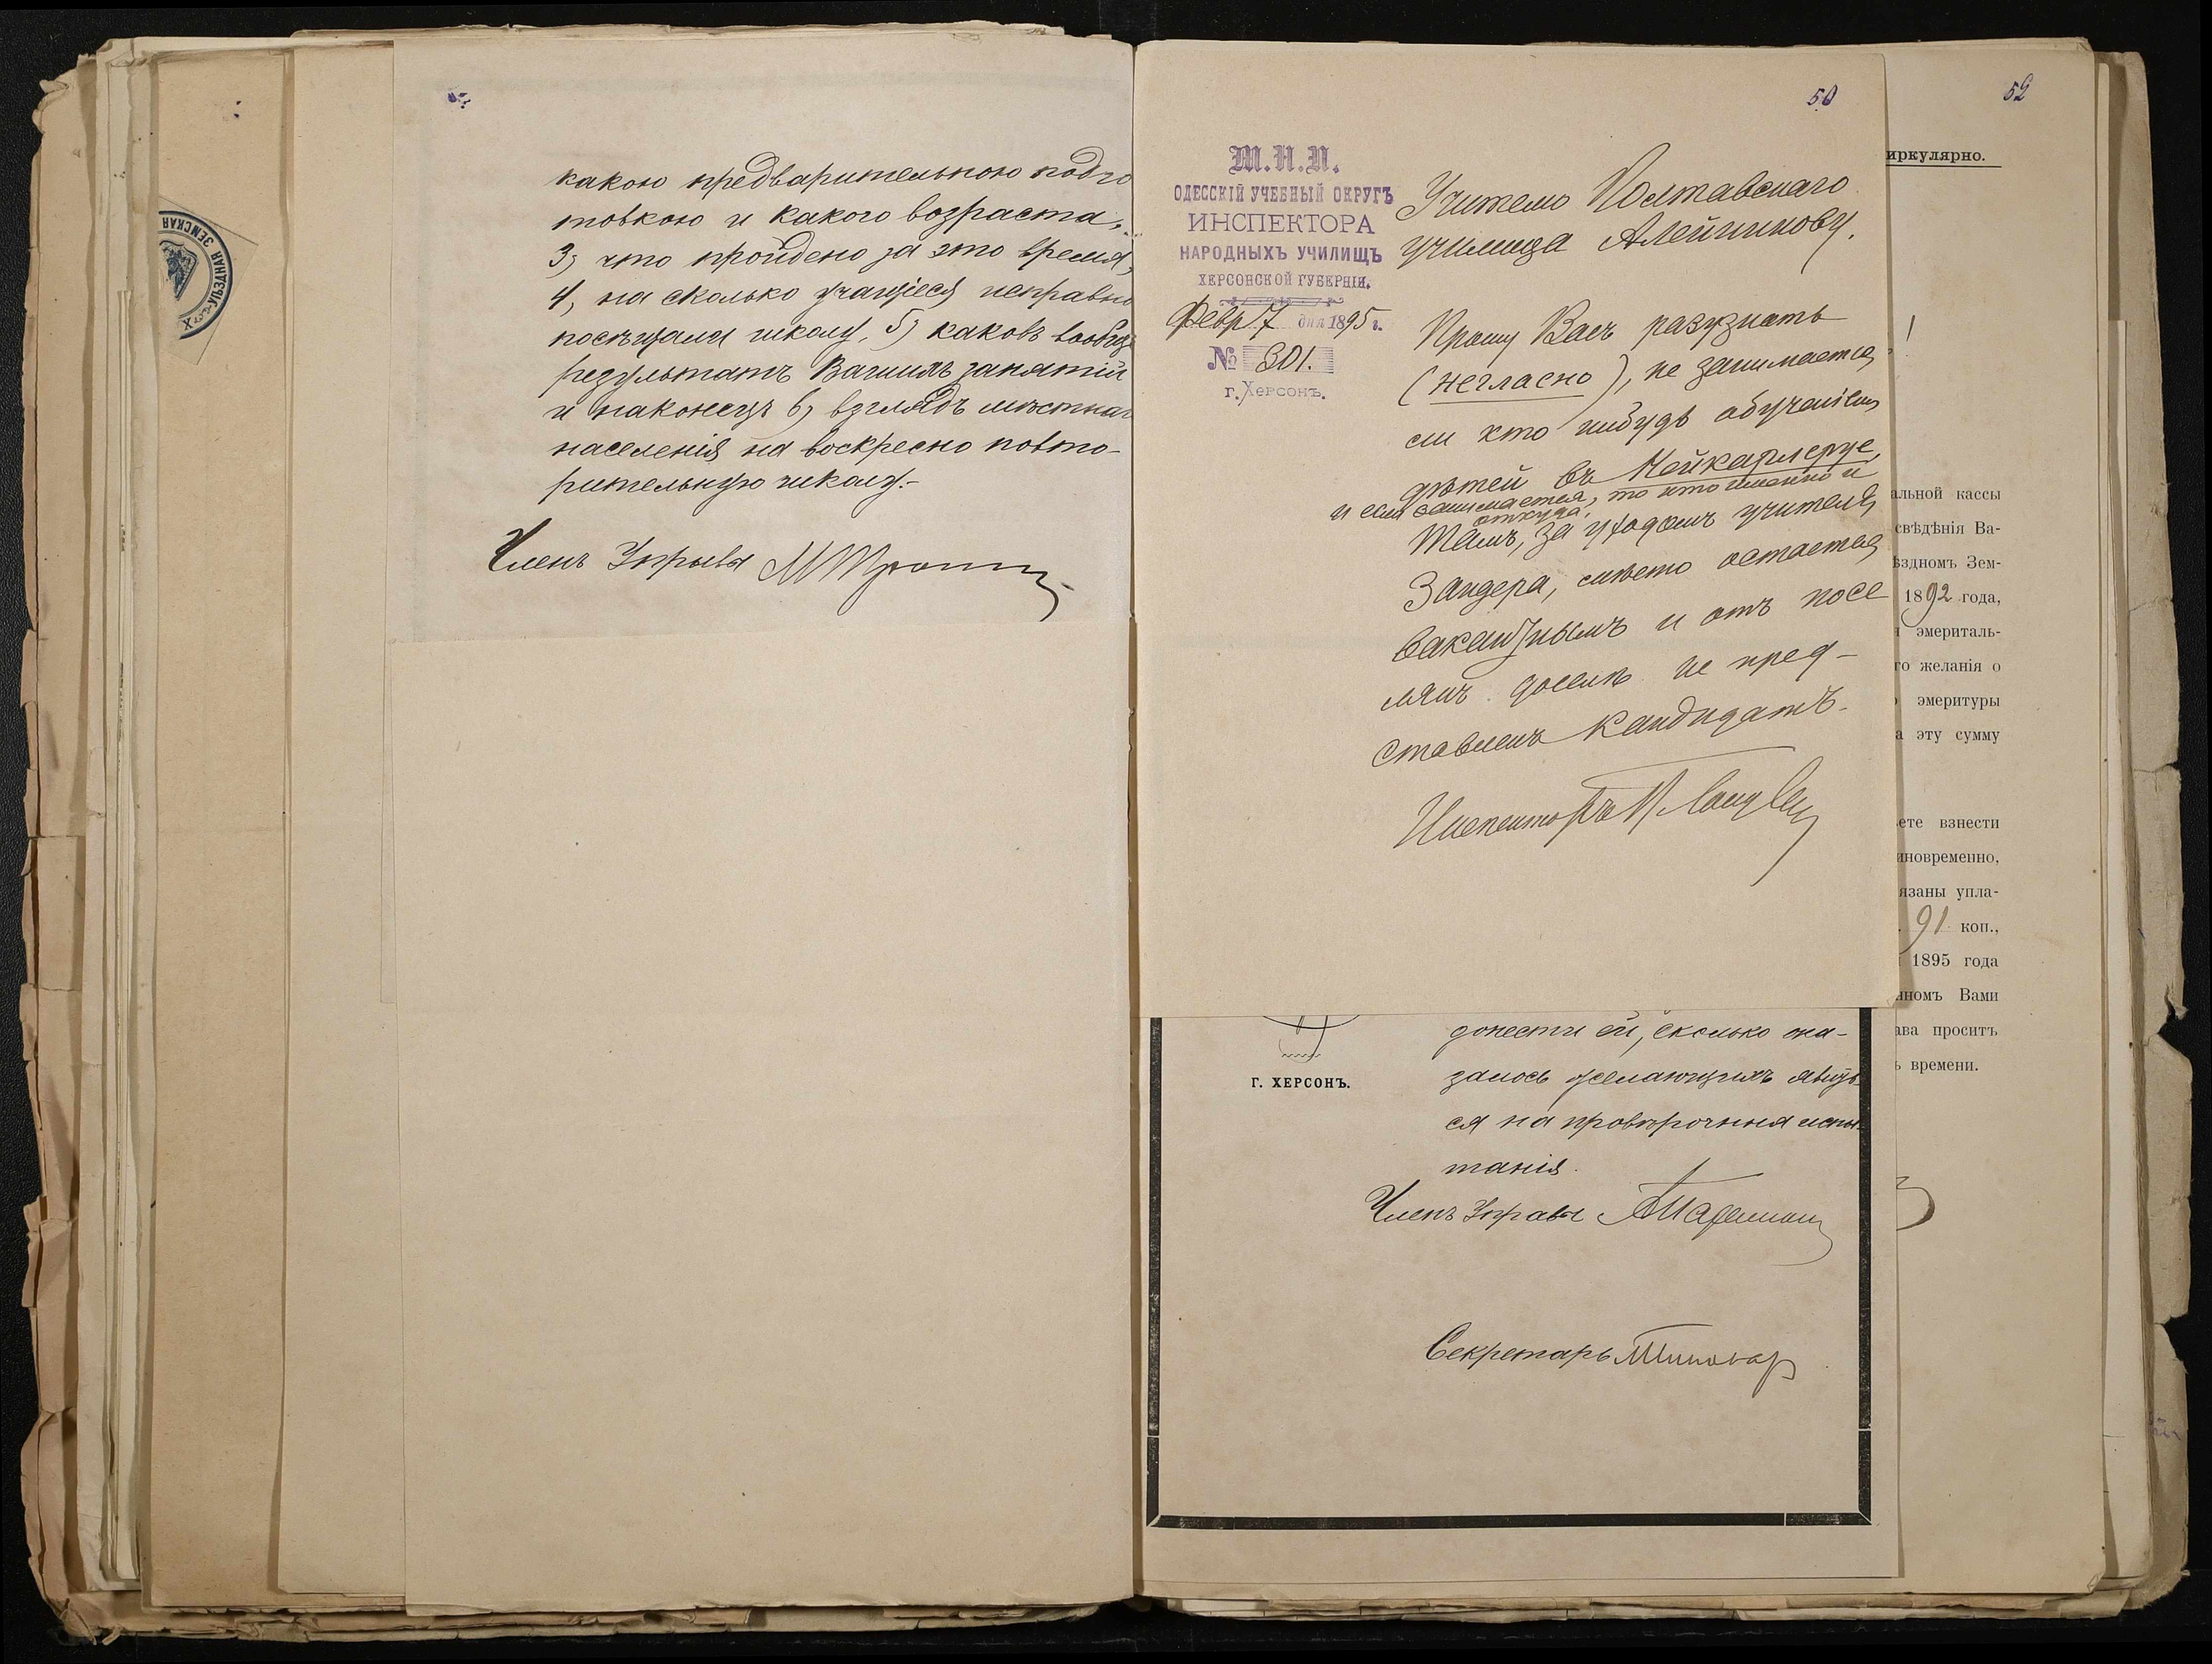 какою предварительною подго
товкою и какого возраста,
3) что пройдено за это время,
4, на сколько учащіеся исправно
посѣщали школу, 5) каковъ вообще
результатъ Вашихъ занятій
и наконецъ 6) взглядъ мѣстнаг
населенія на воскресно повто-
рительную школу.-
Членъ Управы
ЗЕМСКАЯ
УѢЗДНАЯ
50
М.Н.П.
ОДЕССКІЙ УЧЕБНЫЙ ОКРУГЪ
ИНСПЕКТОРА
НАРОДНЫХЪ УЧИЛИЩЪ
ХЕРСОНСКОЙ ГУБЕРНІИ.
Февр 7 дня 1895 г.
№ 301.
г. Херсонъ.
Учителю Полтавскаго
училища Алейникову.
Прошу Васъ разузнать
(негласно), не занимается
ли кто нибудь обученіемъ
дѣтей въ Нейкарлсруе,
и если занимается, то кто именно и
откуда.
Тамъ, за уходомъ учителя
Зандера, мѣсто остается
вакантнымъ и отъ посе
лянъ доселѣ не пред-
ставленъ кандидатъ.
Инспекторъ
донести ей, сколько ока-
залось желающихъ явить-
ся на провѣрочныя испы-
танія.
Г. ХЕРСОНЪ.
Членъ Управы
Секретарь
52
иркулярно.
альной кассы
свѣдѣнія Ва-
ѣздномъ Зем-
1892 года,
эмериталь-
го желанія о
эмеритуры
а эту сумму
ете взнести
иновременно,
язаны упла-
91 коп.,
1895 года
нномъ Вами
ава проситъ
ь времени.